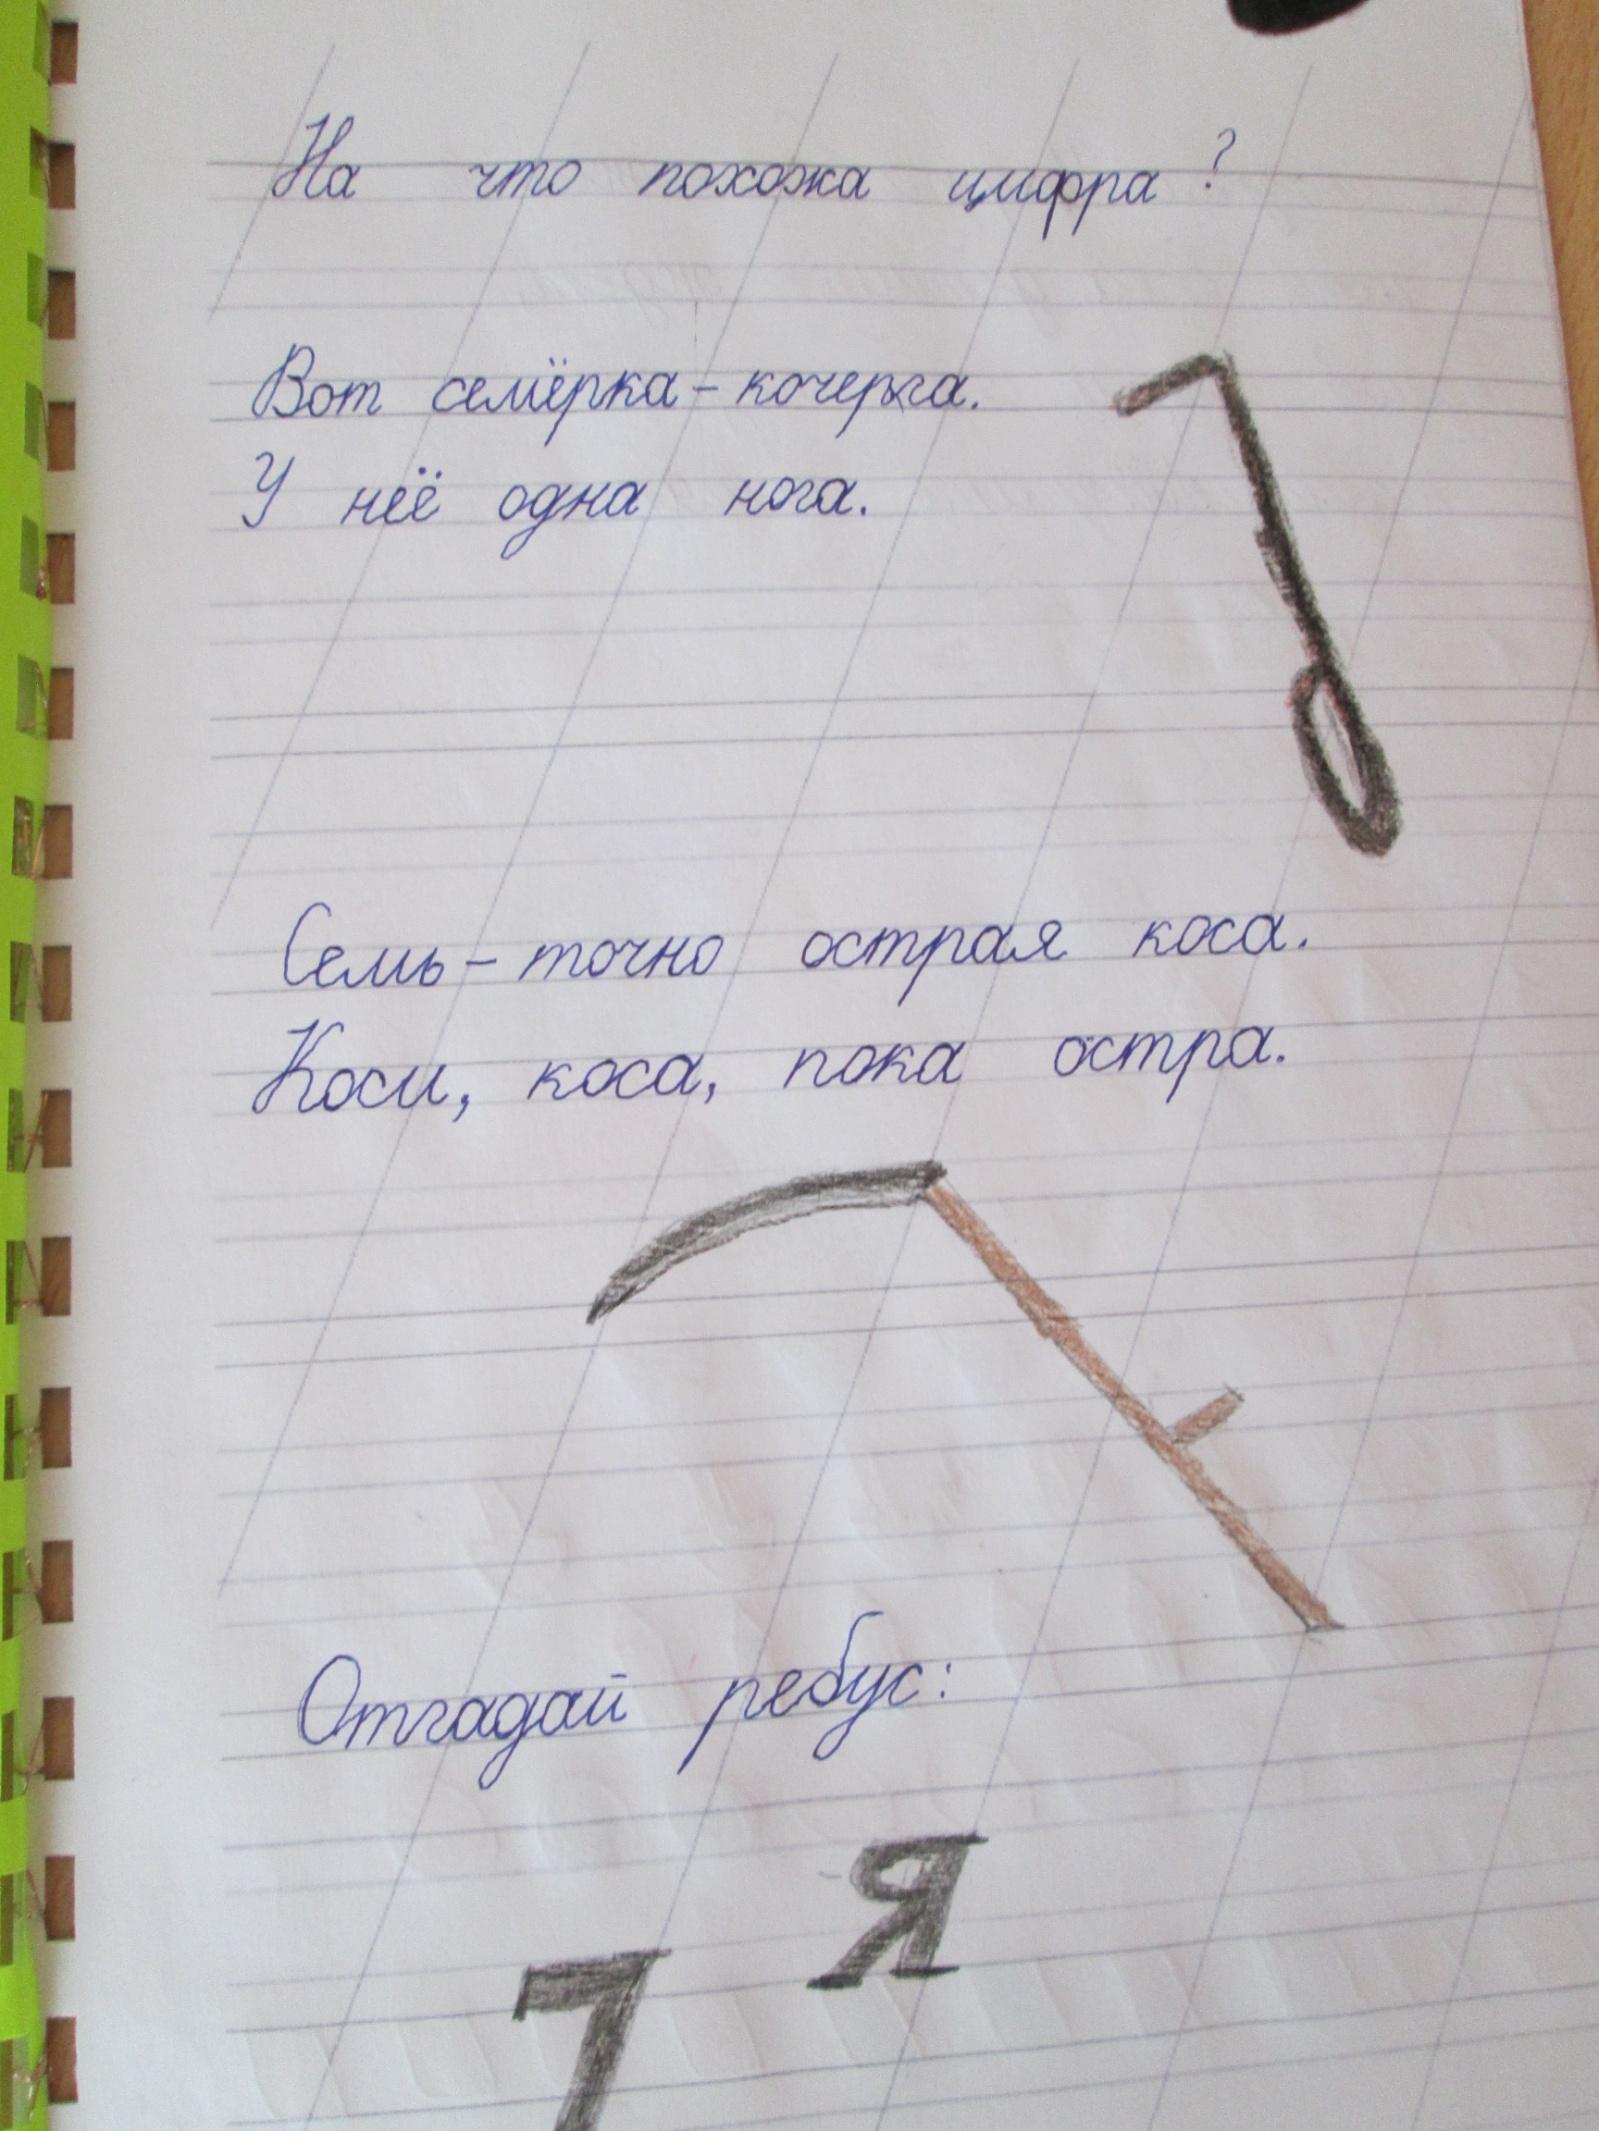 На что похожа цифра?
Вот семёрка – кочерга.
У неё одна нога.
Семь – точно острая коса.
Коси, коса, пока остра.
Отгадай ребус:
7 Я